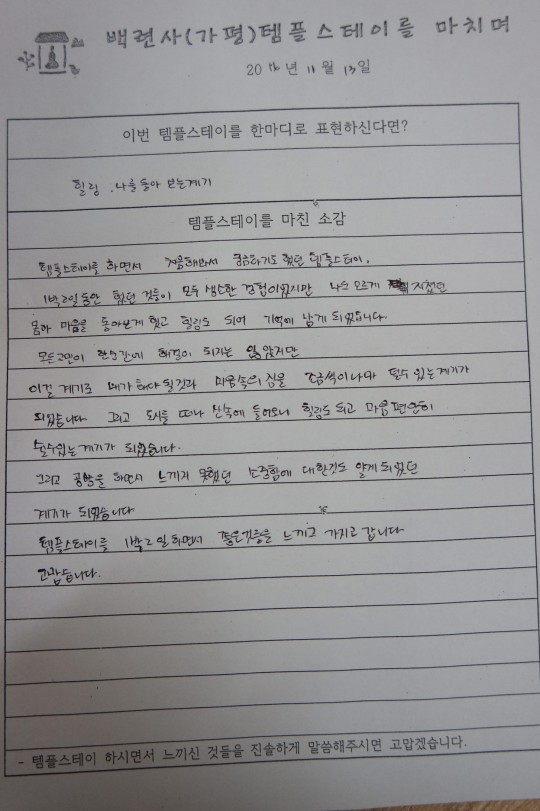 백련사(가평)템플스테이를 마치며
20 년 11 월 13 일
이번 템플스테이를 한마디로 표현하신다면?
힐링 . 나를 돌아 보는계기
템플스테이를 마친 소감
템플스테이를 하면서 처음해봐서 궁금하기도 했던 템플스테이.
1박2일동안 했던 것들이 모두 생소한 경험이었지만 나도 모르게 지쳤던
몸과 마음을 돌아보게 했고 힐링도 되어 기억에 남게 되었습니다.
모든고민이 한순간에 해결이 되지는 않았지만
이걸 계기로 내가 해야 될것과 마음속의 짐을 조금씩이나마 덜수 있는계기가
되었습니다 그리고 도시를 떠나 산속에 들어오니 힐링도 되고 마음 편안히
쉴수있는 계기가 되었습니다.
그리고 공양을 하면서 느끼지 못했던 소중함에 대한것도 알게 되었던
계기가 되었습니다
템플스테이를 1박 2일 하면서 좋은것들을 느끼고 가지고 갑니다
고맙습니다.
- 템플스테이 하시면서 느끼신 것들을 진솔하게 말씀해주시면 고맙겠습니다.